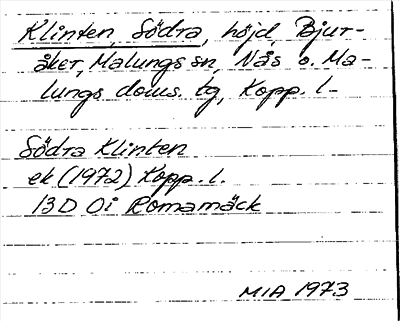 Klinten, Södra, höjd, Bjur-
åker, Malungs sn, Nås o. Ma-
lungs doms. tg, Kopp. l-
Södra Klinten
ek (1972) Kopp. l.
13D 0i Romamäck
MIA 1973